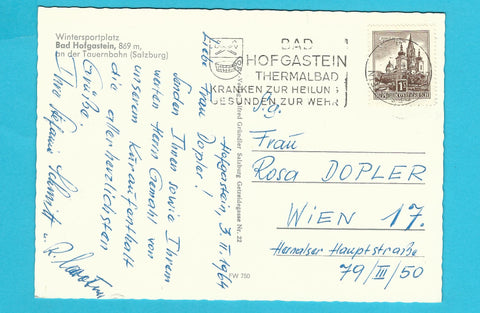 Wintersportplatz
Bad Hofgastein, 869 m,
an der Tauernbahn (Salzburg)
BAD
HOFGASTEIN
THERMALBAD
KRANKEN ZUR HEILUNG
GESUNDEN ZUR WEHR
Hofgastein, 3.II.1964
Liebe Frau Dopler!
Senden Ihnen sowie Ihrem
werten Herrn Gemahl von
unserem Kuraufenthalt
die allerherzlichsten
Grüße
Ihre Stefanie Schmitt
Alfred Gründler Salzburg Getreidegasse Nr. 22
FW 750
Frau
Rosa DOPLER
WIEN 17.
Hernalser Hauptstraße
79/III/50